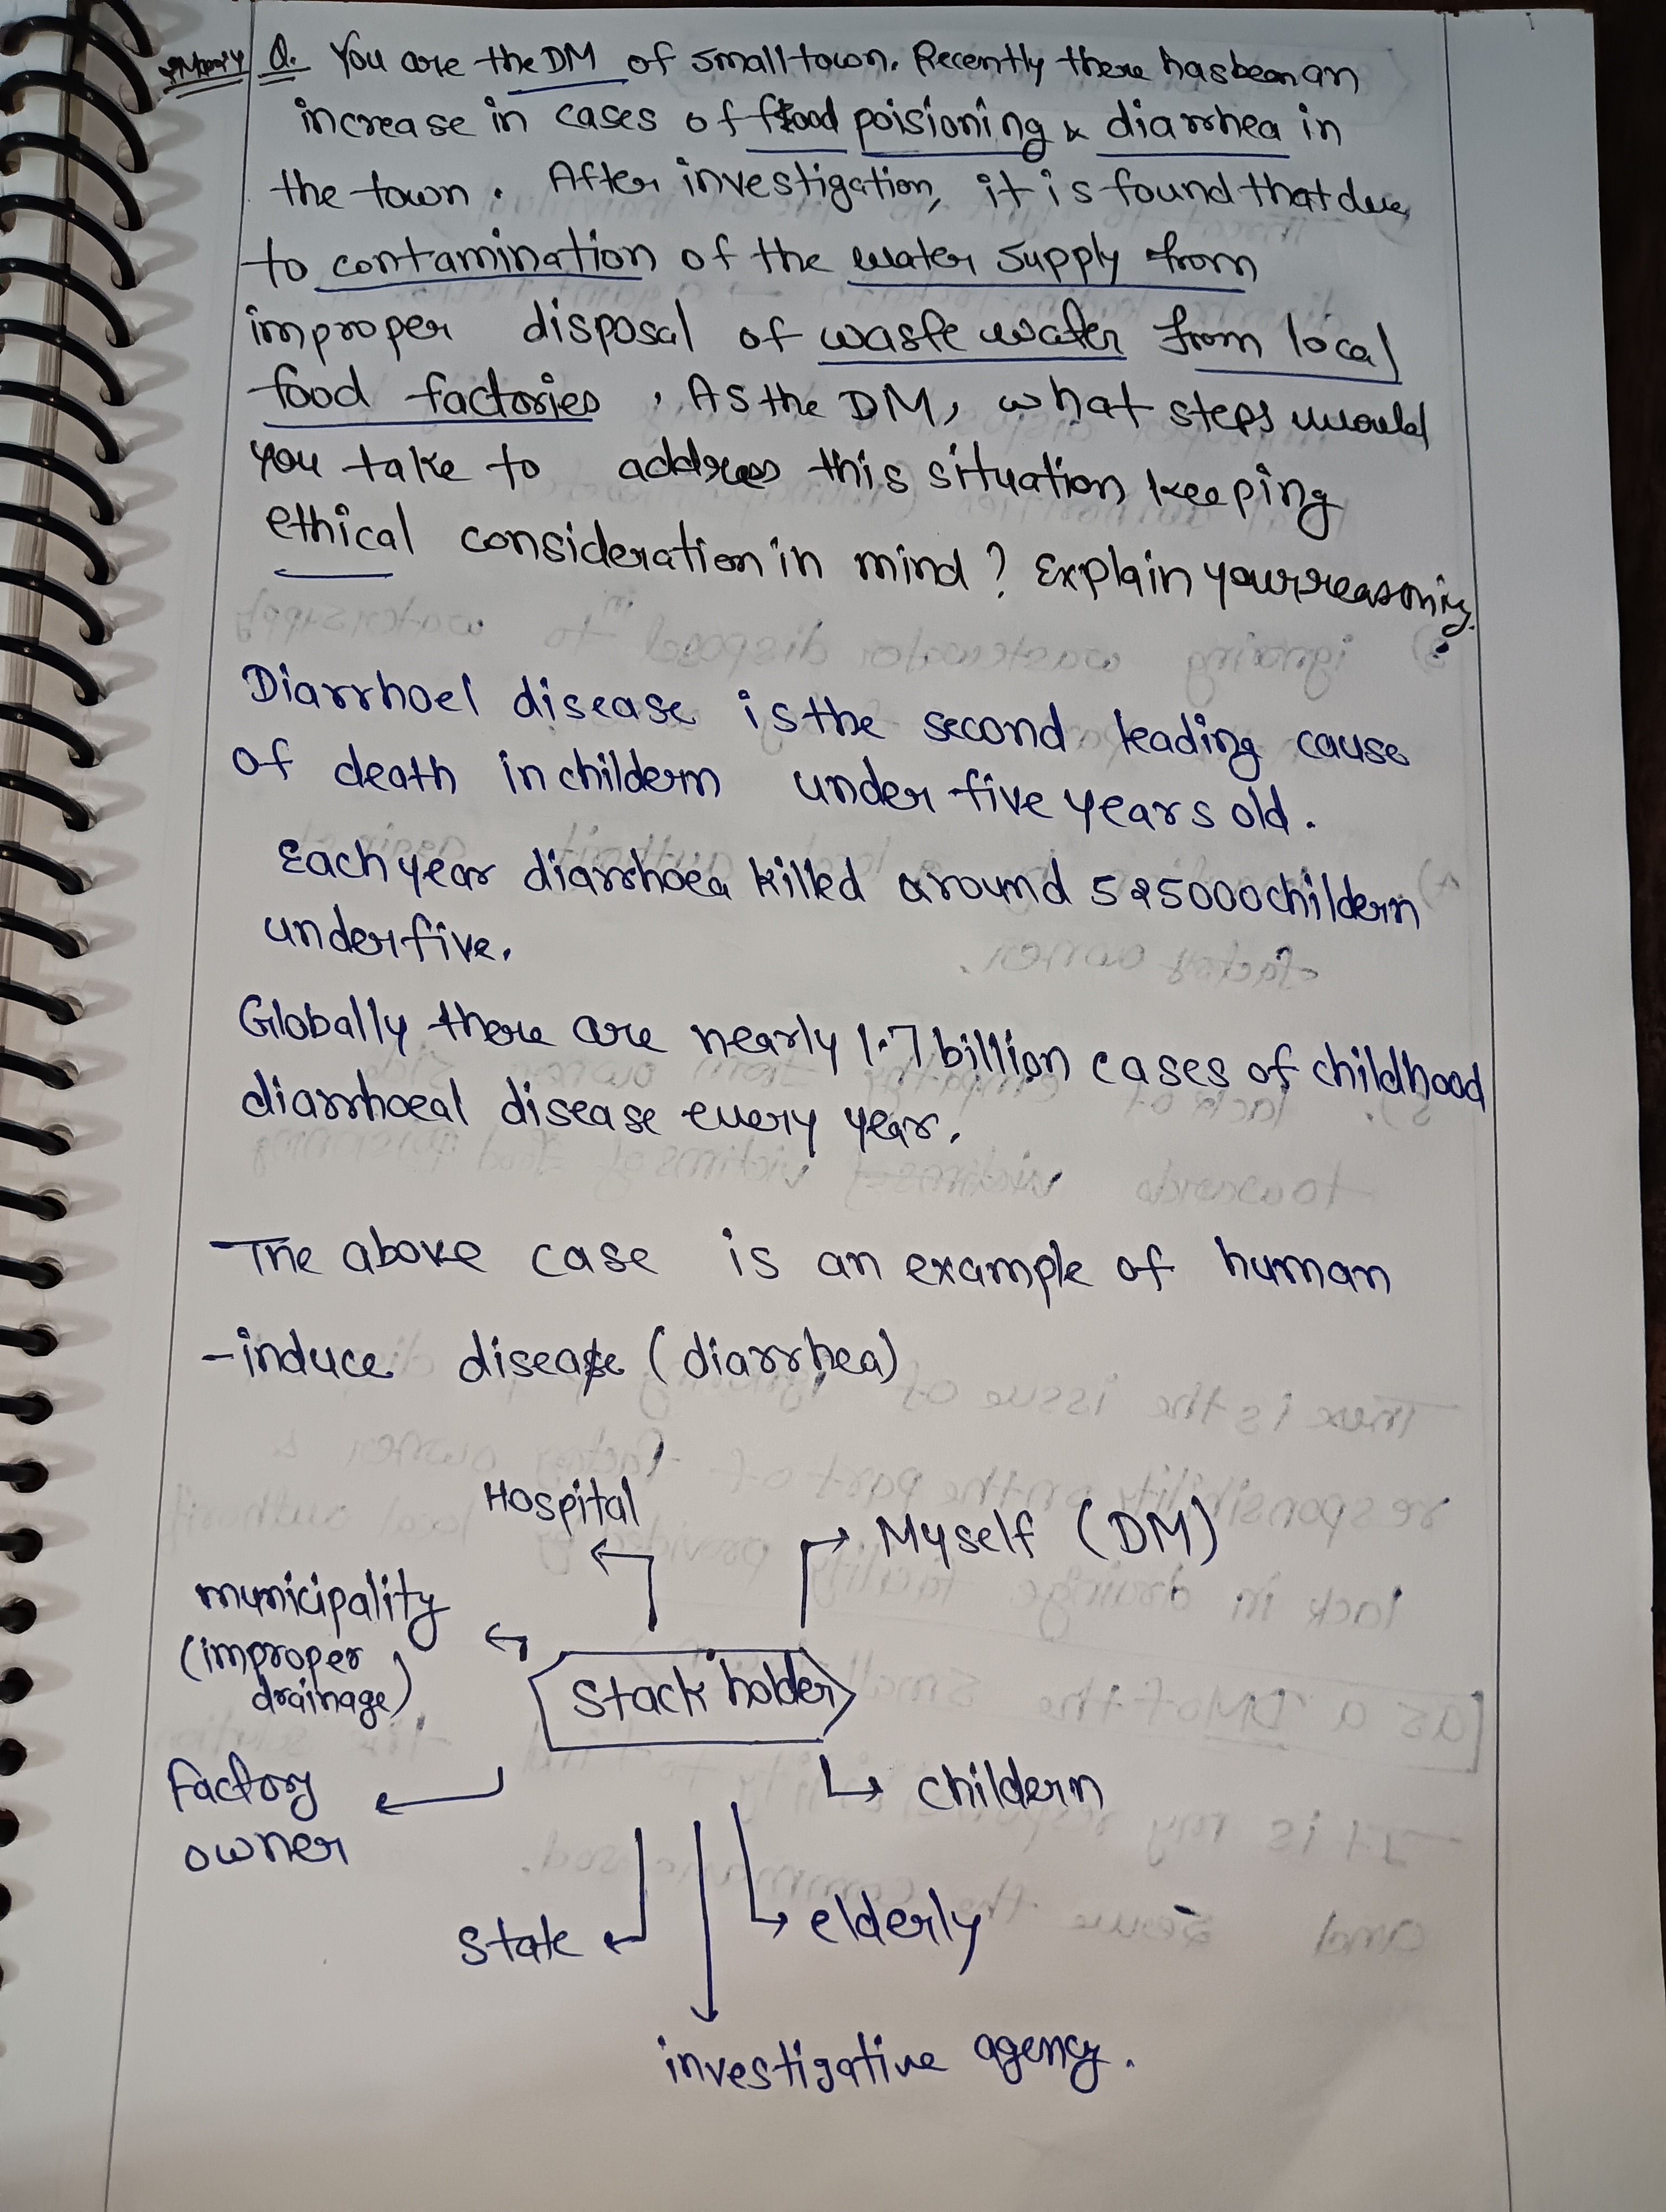 Q. You are the DM of small town. Recently there has been an
increase in cases of food poisioning & diarrhea in
the town. After investigation, it is found that due
to contamination of the water supply from
improper disposal of waste water from local
food factories, As the DM, what steps would
you take to address this situation keeping
ethical consideration in mind? Explain your reasoning.
Diarrhoel disease is the second leading cause
of death in childern under five years old.
Each year diarrhoea killed around 525000 childern
under five.
Globally there are nearly 1.7 billion cases of childhood
diarrhoeal disease every year.
The above case is an example of human
-induce disease (diarrhea)
Hospital
Myself (DM)
municipality
(improper
drainage)
Stack holder
factory
owner
childern
state
elderly
investigative agency.